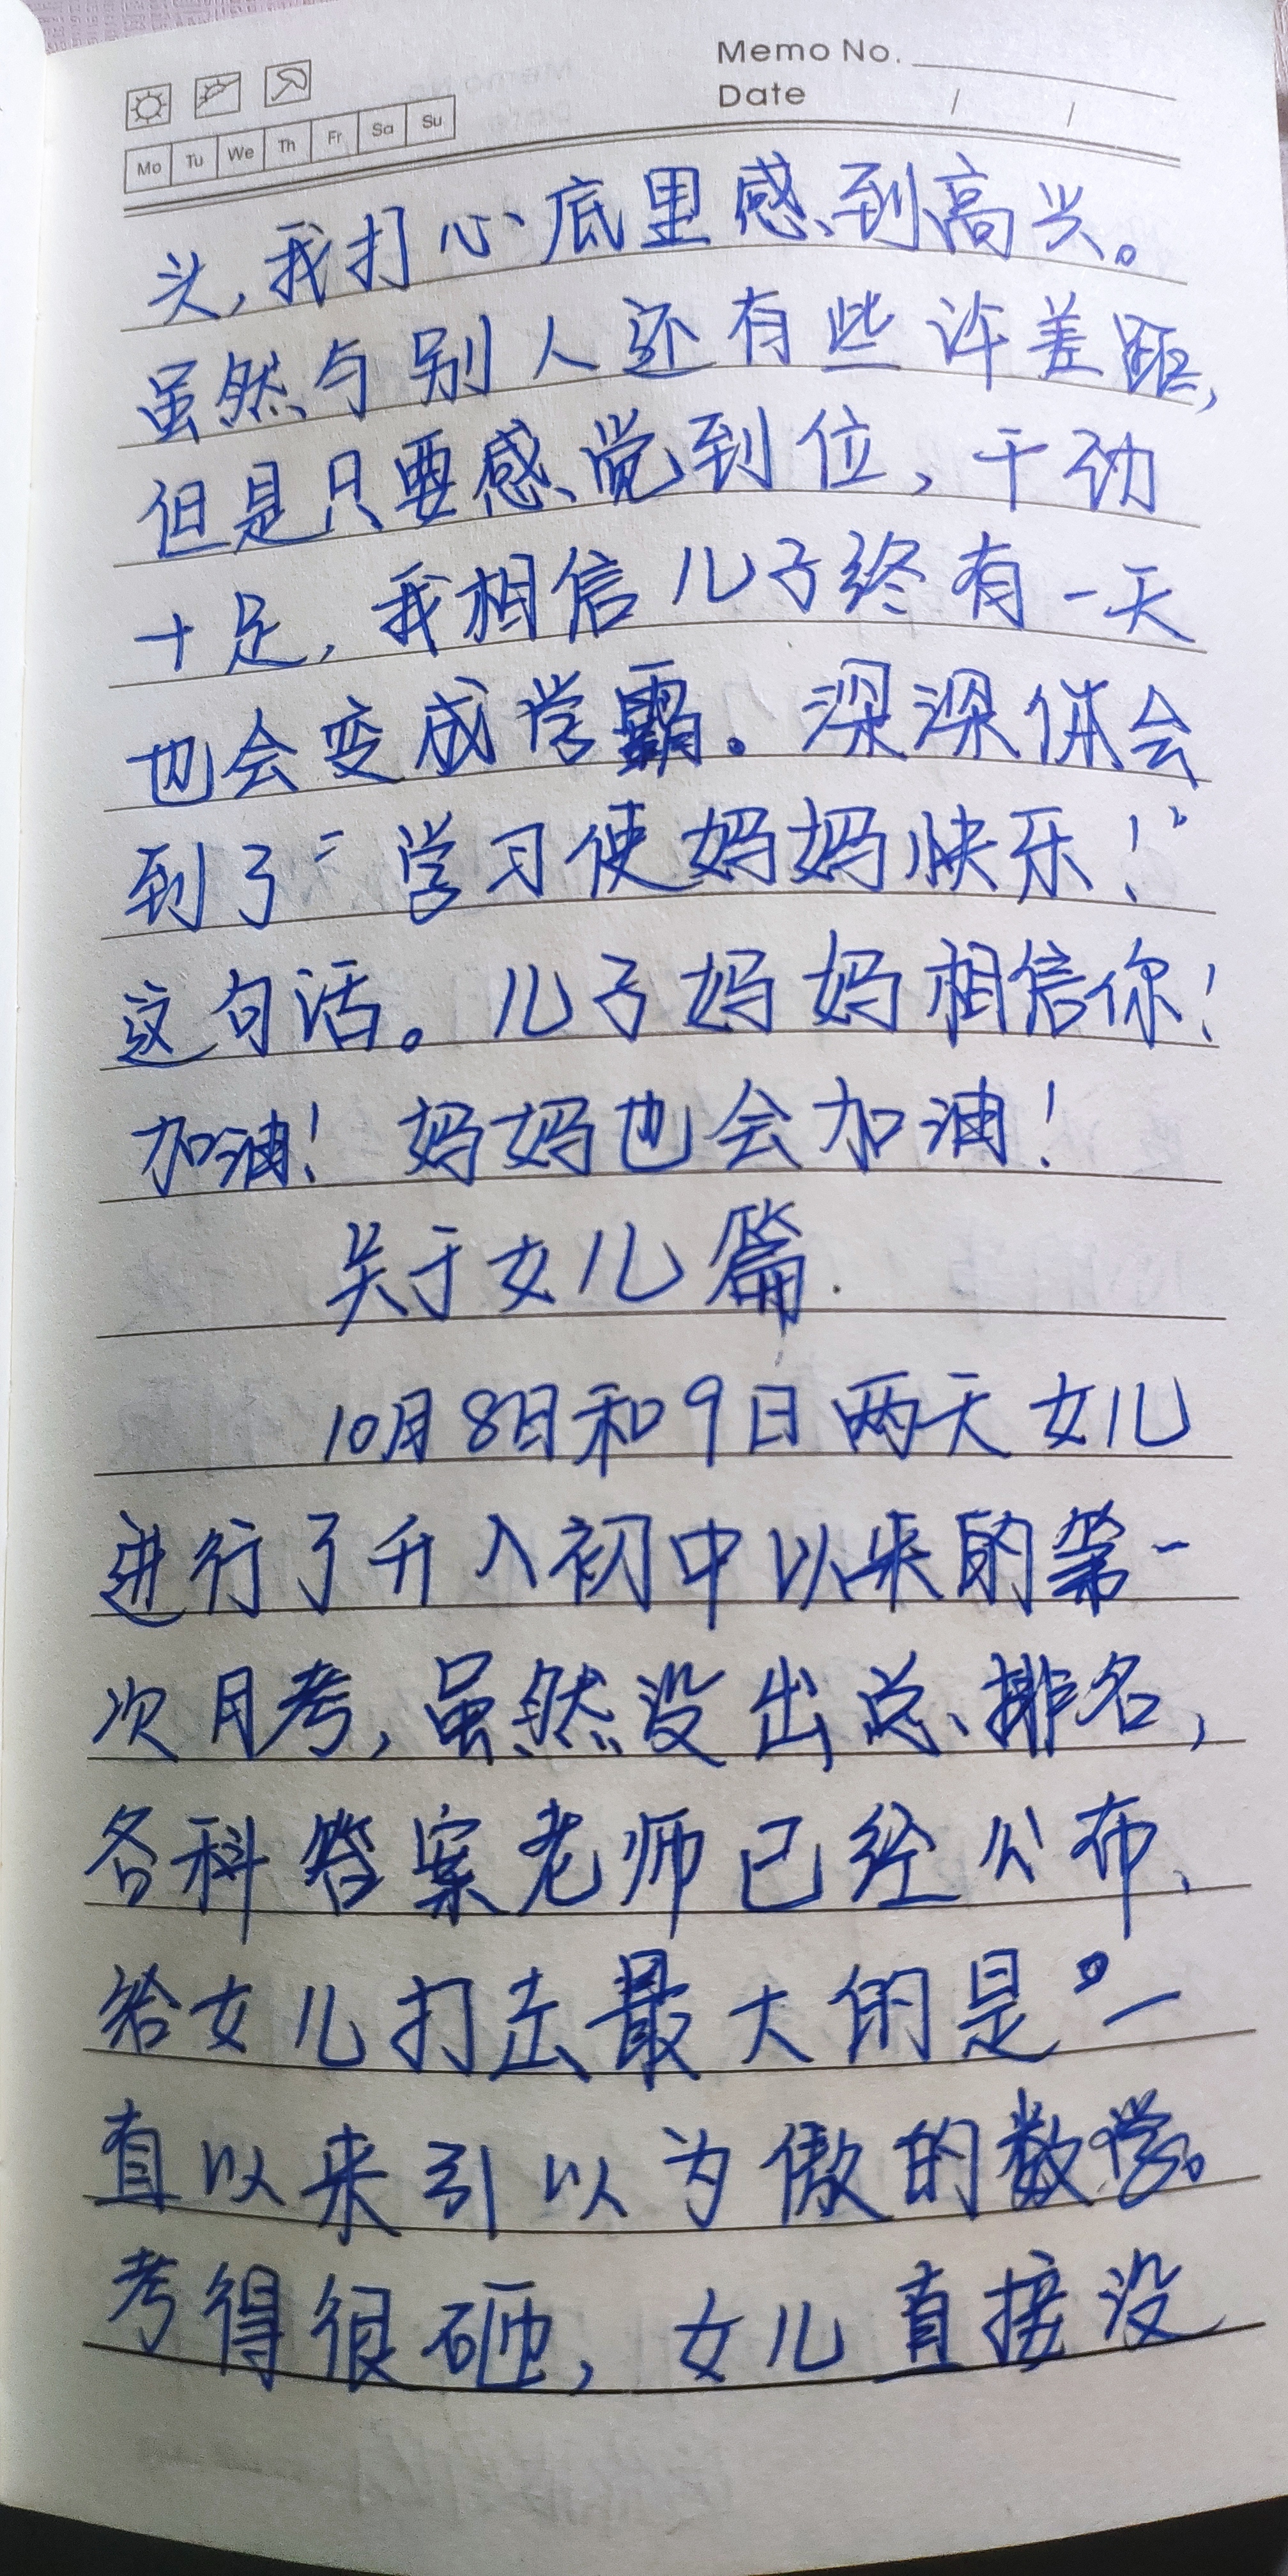 Memo No.
Date / /
Mo Tu We Th Fr Sa Su
头,我打心底里感到高兴。
虽然与别人还有些许差距,
但是只要感觉到位,干劲
十足,我相信儿子终有一天
也会变成学霸。深深体会
到了“学习使妈妈快乐!”
这句话。儿子妈妈相信你!
加油!妈妈也会加油!
关于女儿篇.
10月8日和9日两天女儿
进行了升入初中以来的第一
次月考,虽然没出总排名,
各科答案老师已经公布、
给女儿打击最大的是一
直以来引以为傲的数学。
考得很砸,女儿直接没